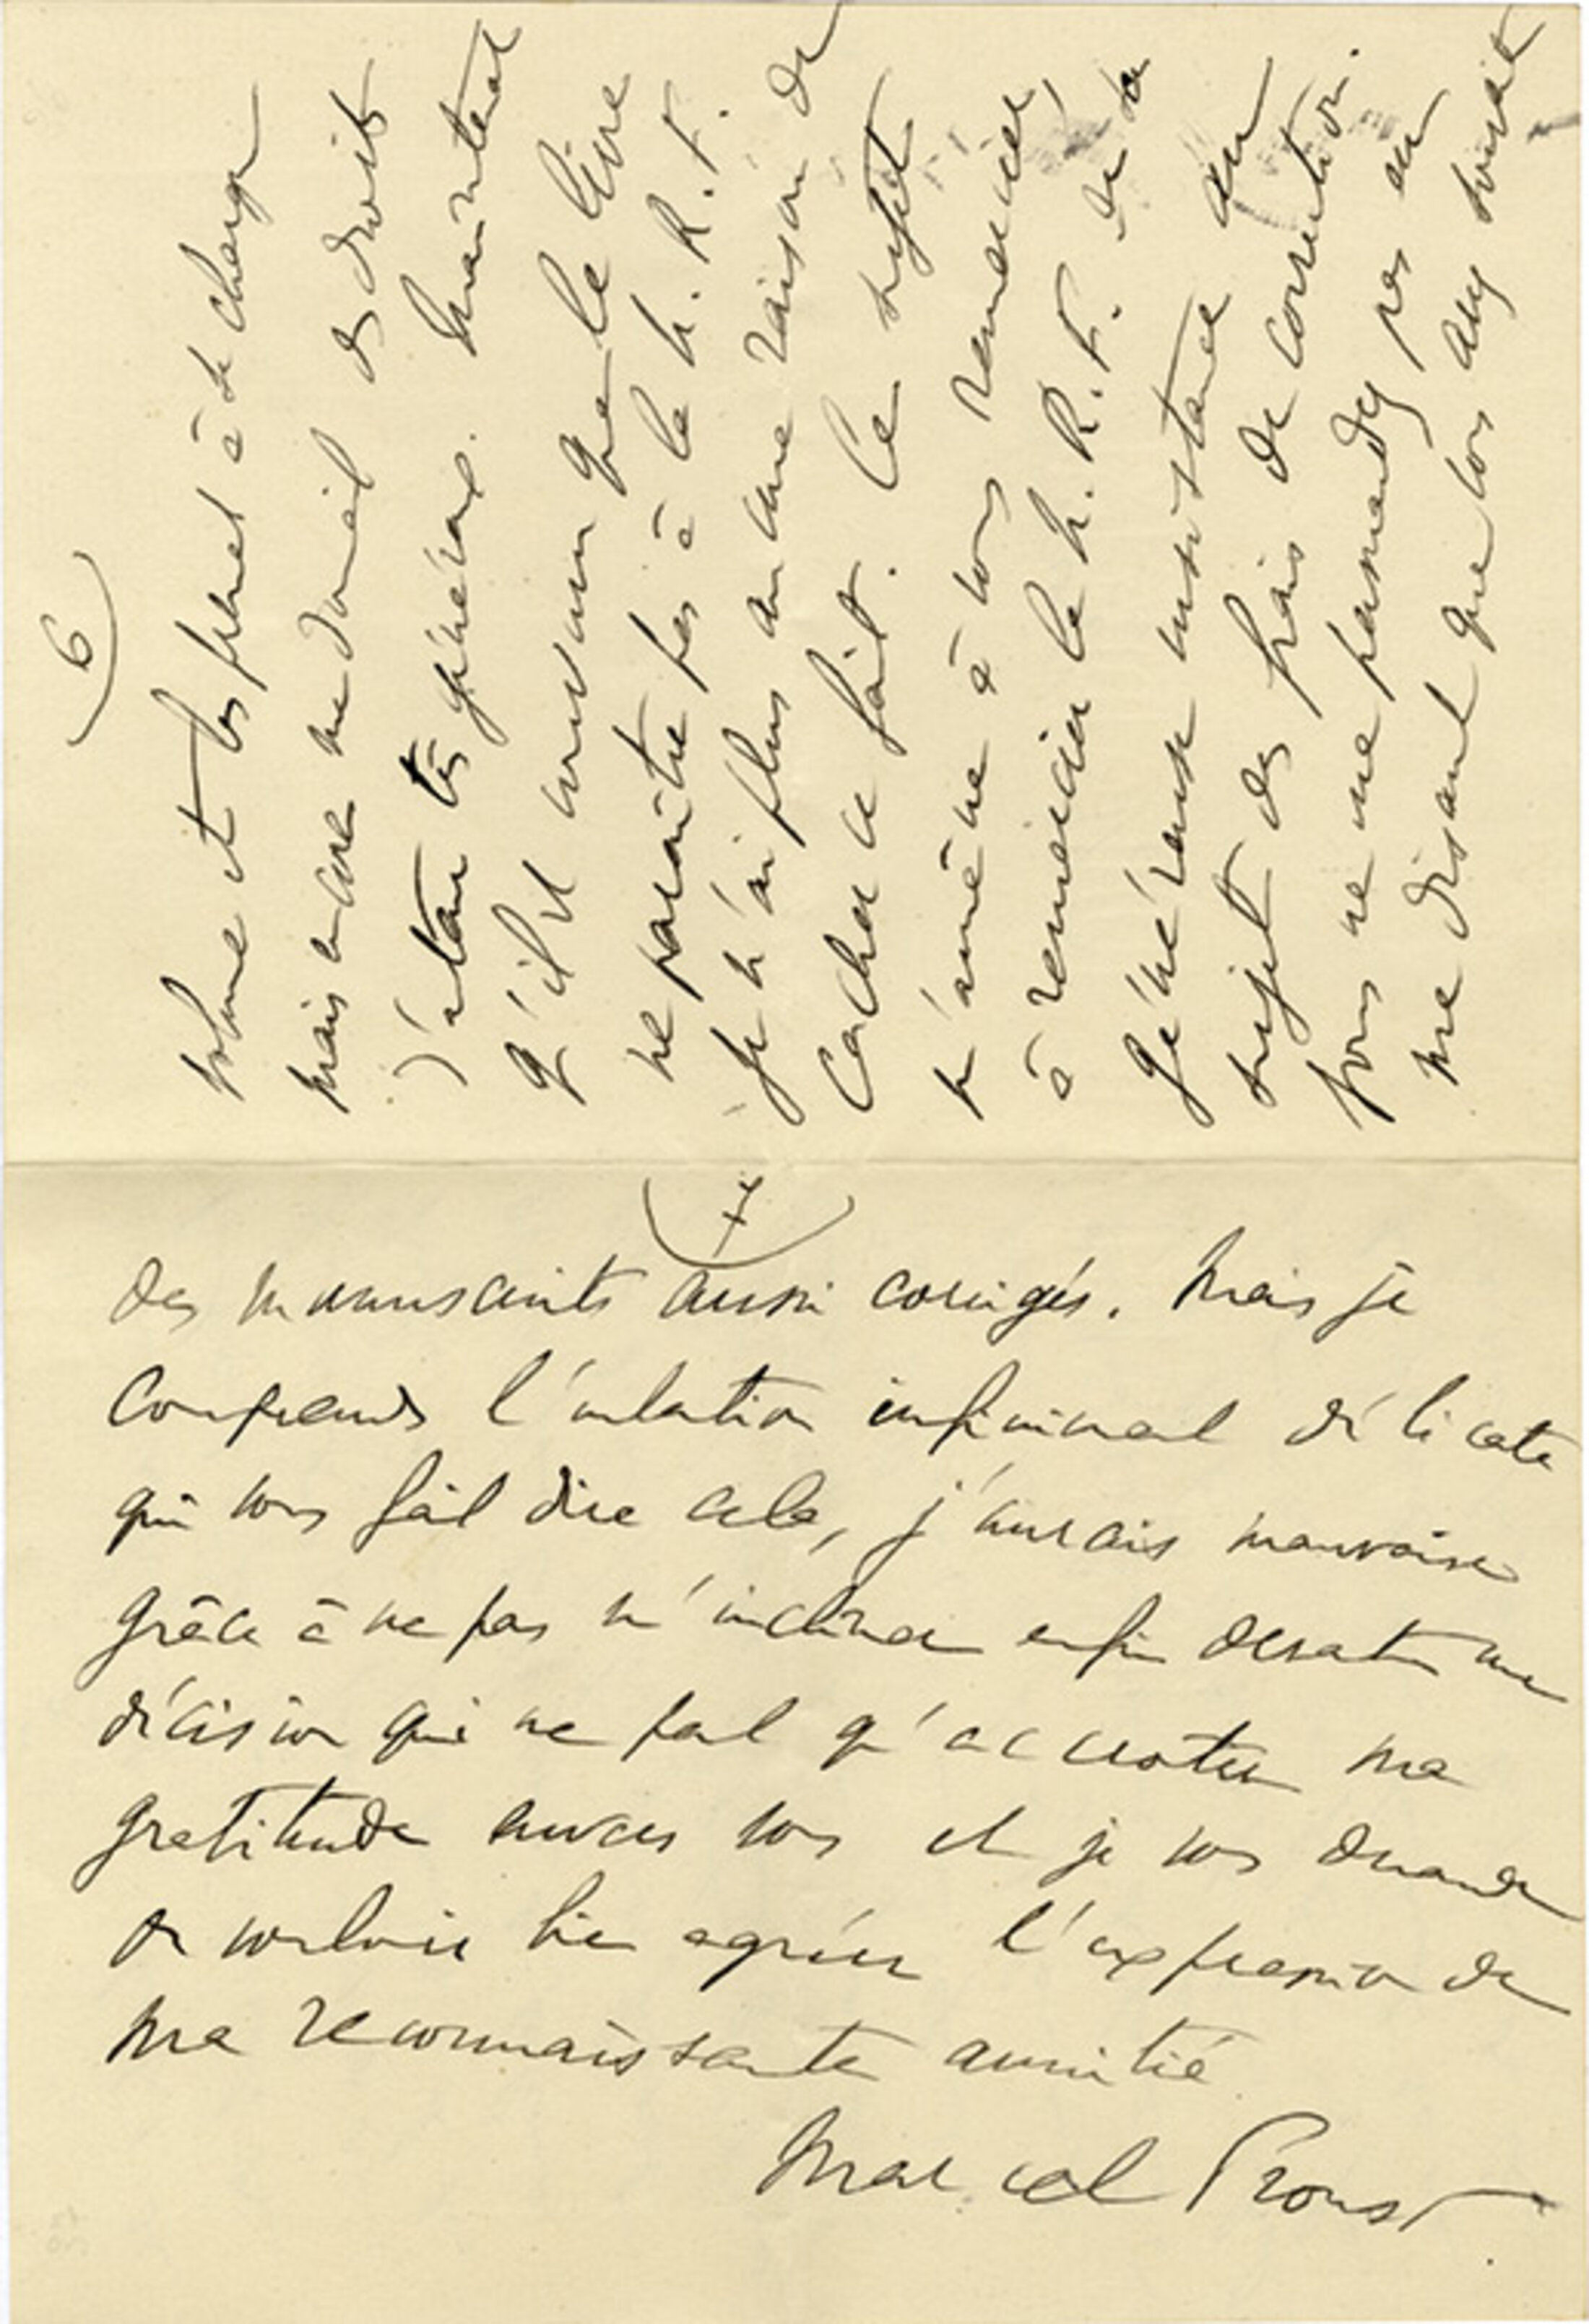 6)
volume et les prenait à sa charge
mais encore me donnait des droits
d'auteur très généreux. Maintenant
qu'il est convenu que le livre
ne paraîtra pas à la N. R. F.
je n'ai plus aucune raison de
cacher ce fait. Ce sujet
m'amène à vous remercier,
à remercier la N. R. F. de sa
généreuse insistance au
sujet des frais de correction.
Vous ne me persuadez pas en
me disant que vous avez souvent
(7
des manuscrits aussi corrigés. Mais je
comprends l'intention infiniment délicate
qui vous fait dire cela, j'aurais mauvaise
grâce à ne pas m'incliner enfin devant une
décision qui ne fait qu'accroître ma
gratitude envers vous et je vous demande
de vouloir bien agréer l'expression de
ma reconnaissante amitié
Marcel Proust